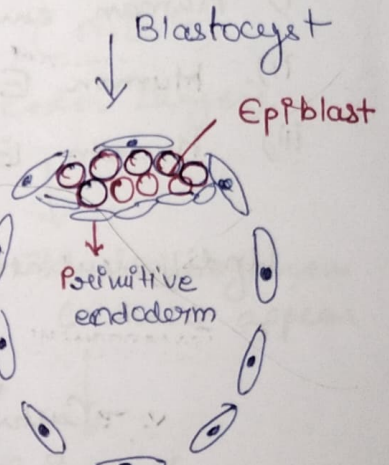 Blastocyst
Epiblast
Primitive
endoderm